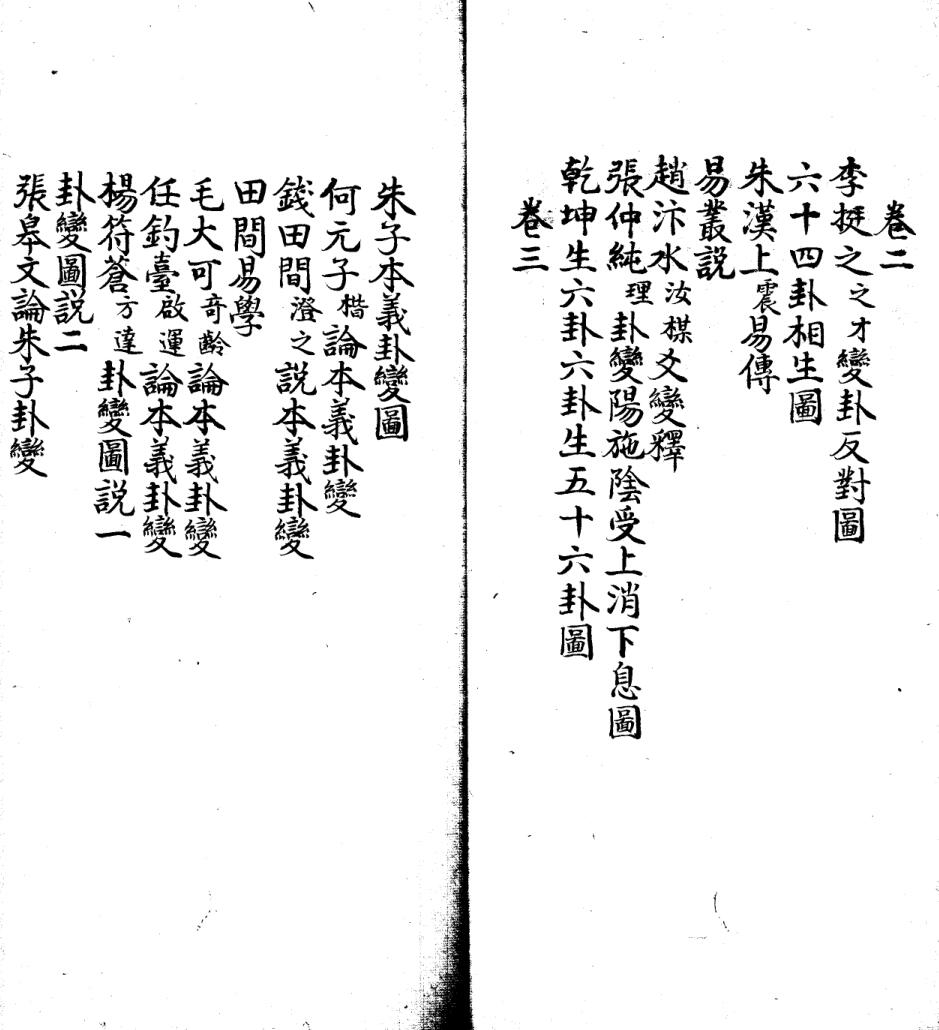 卷二
李挺之之才變卦反對圖
六十四卦相生圖
朱漢上震易傳
易叢說
趙汴水汝楳爻變釋
張仲純理卦變陽施陰受上消下息圖
乾坤生六卦六卦生五十六卦圖
卷三
朱子本義卦變圖
何元子楷論本義卦變
錢田間澄之說本義卦變
田間易學
毛大可奇齡論本義卦變
任釣臺啟運論本義卦變
楊符蒼方達卦變圖說一
卦變圖説二
張皋文論朱子卦變